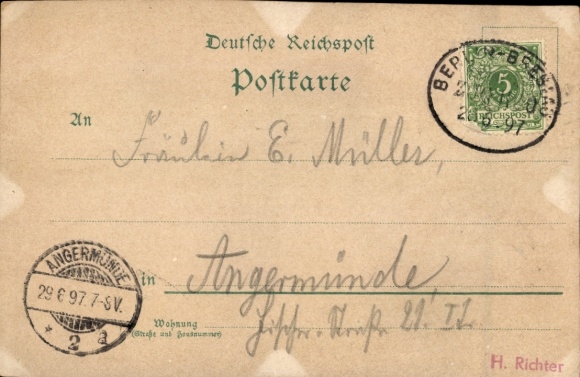 Deutsche Reichspost
Postkarte
BERLIN-BRESLAU
5
REICHSPOST
6.97
An
Fräulein E. Müller,
ANGERMÜNDE
29 6 97. 7-8V.
* 2 a
in Angermünde,
Wohnung
(Straße und Hausnummer)
Fischer-Straße 21. II.
H. Richter